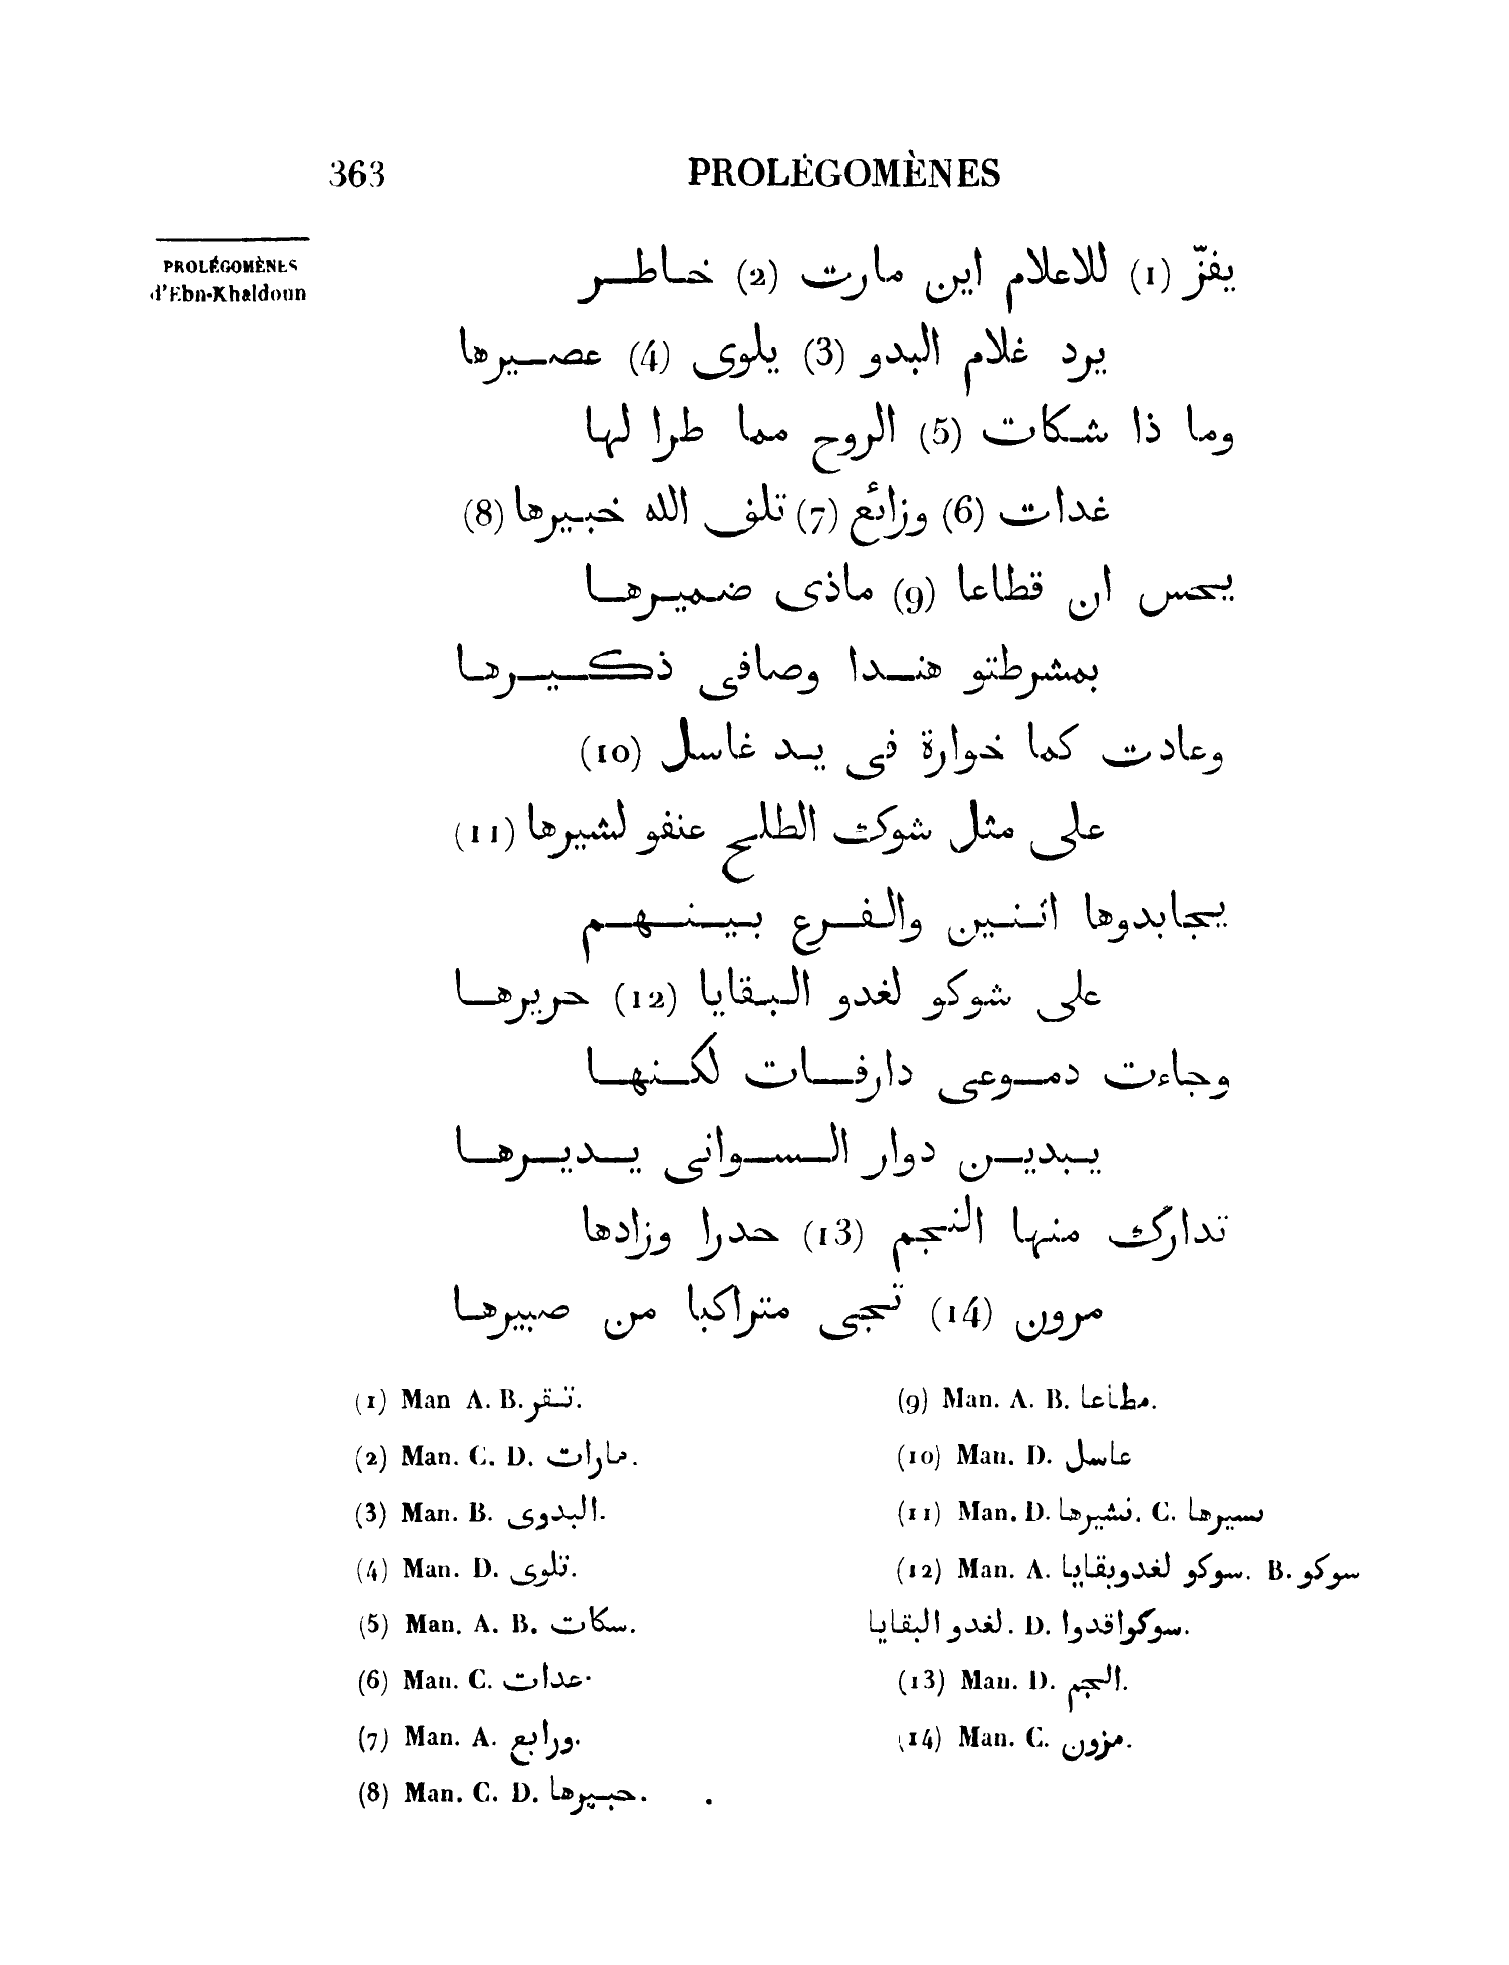 363 PROLÉGOMÈNES
PROLÉGOMÈNES
d'Ebn-Khaldoun
يفزّ (1) للاعلام اين مارت (2) خاطر
يرد غلام البدو (3) يلوى (4) عصيرها
وما ذا شكات (5) الروح مما طرا لها
غدات (6) وزائع (7) تلف الله خبيرها (8)
يحس ان قطاعا (9) ماذى ضميرها
بمشرطتو هندا وصافى ذكيرها
وعادت كما خوارة فى يد غاسل (10)
على مثل شوك الطلح عنفو لشيرها (11)
يجابدوها اثنين والفرع بينهم
على شوكو لغدو البقايا (12) حريرها
وجاءت دموعى دارفات لكنها
يبدين دوار السوانى يديرها
تدارك منها النجم (13) حدرا وزادها
مرون (14) تجى متراكبا من صبيرها
(1) Man A. B. تقر.
(2) Man. C. D. مارات.
(3) Man. B. البدوى.
(4) Man. D. تلوى.
(5) Man. A. B. سكات.
(6) Man. C. عدات.
(7) Man. A. ورابع.
(8) Man. C. D. حبيرها.
(9) Man. A. B. مطاعا.
(10) Man. D. عاسل
(11) Man. D. نشيرها. C. سيرها
(12) Man. A. سوكو لغدوبقايا. B. سوكو
لغدو البقايا. D. سوكواقدوا.
(13) Man. D. الجم.
(14) Man. C. مزون.